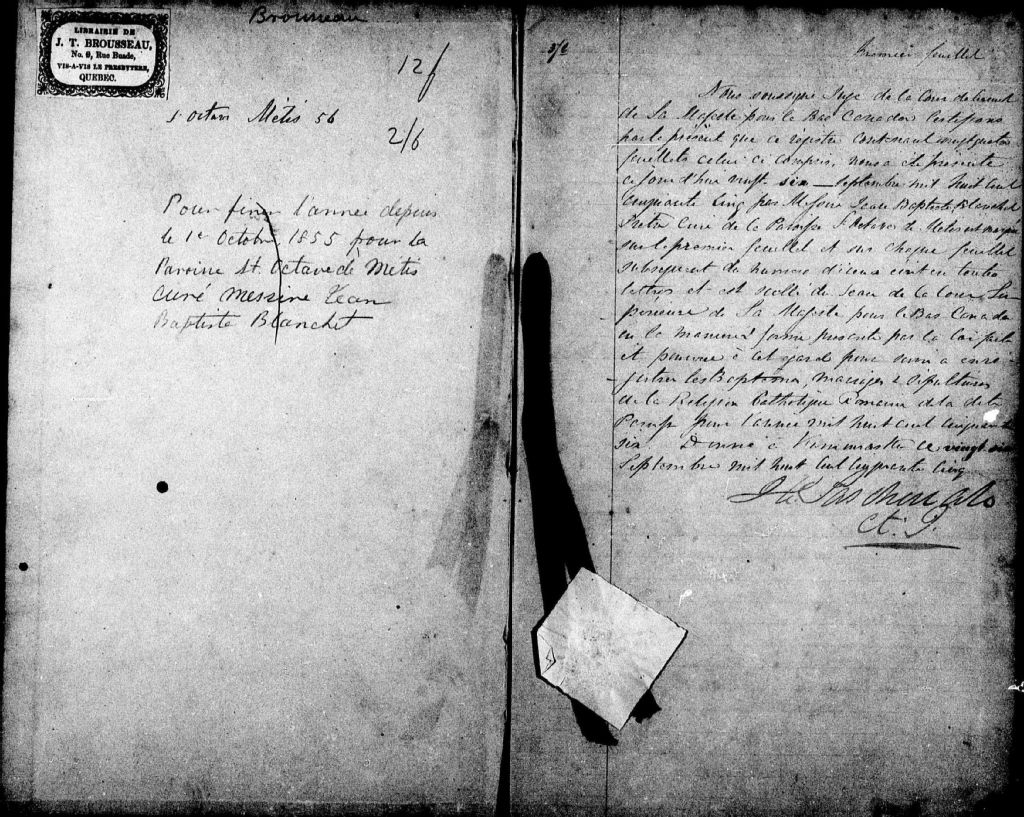 Brousseau
LIBRAIRIE DE
J. T. BROUSSEAU,
No. 9, Rue Buade,
VIS-A-VIS LE PRESBYTERE,
QUEBEC.
12f
St Octave Métis 56
2/6
Pour finir l'année depuis
le 1er Octobre 1855 pour la
Paroisse St. Octave de Métis
curé messire Jean
Baptiste Blanchet
Premier feuillet
Nous soussigné Juge de la Cour de Circuit
de Sa Majesté pour le Bas Canada Certifions
par le présent que ce régistre contenant vingt quatre
feuillets celui ci compris, nous a été présenté
ce jour d'hui vingt six septembre mil huit cent
cinquante cinq par Messire Jean Baptiste Blanchet
Prêtre Curé de la Paroisse St Octave de Métis et
sur le premier feuillet et sur chaque feuillet
subséquent du numéro d'iceux écrit en toutes
lettres et est scellé du sceau de la Cour Su-
périeure de Sa Majesté pour le Bas Canada
en la manière & forme par la loi faite
et pourvue à cet égard pour servir à enré-
gistrer les Baptêmes, mariages & Sépultures
de la Religion Catholique Romaine de la dite
Paroisse pour l'année mil huit cent cinquante
six Donné à Rimouski ce vingt six
Septembre mil huit cent cinquante cinq